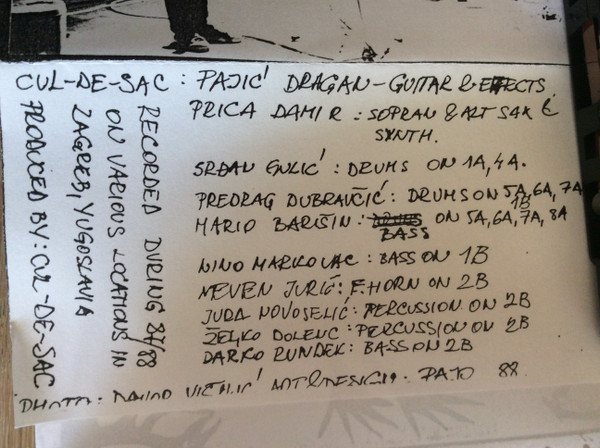 CUL-DE-SAC : PAJIĆ DRAGAN - GUITAR & EFFECTS.
PRICA DAMIR : SOPRAN & ALT SAX &
SYNTH.
SRĐAN ENLIĆ : DRUMS ON 1A, 4A.
PREDRAG DUBRAVČIĆ : DRUMS ON 5A, 6A, 7A
1B
MARIO BARIŠIN : ON 5A, 6A, 7A, 8A
BASS
NINO MARKOVAC : BASS ON 1B
NEVEN JURIĆ : F. HORN ON 2B
JUDA NOVOSELIĆ : PERCUSSION ON 2B
ŽELJKO DOLENC : PERCUSSION ON 2B
DARKO RUNDEK : BASS ON 2B
RECORDED DURING 87/88
ON VARIOUS LOCATIONS IN
ZAGREB, YUGOSLAVIA
PRODUCED BY : CUL-DE-SAC
PHOTO : ART & DESIGN : PAJO 88.